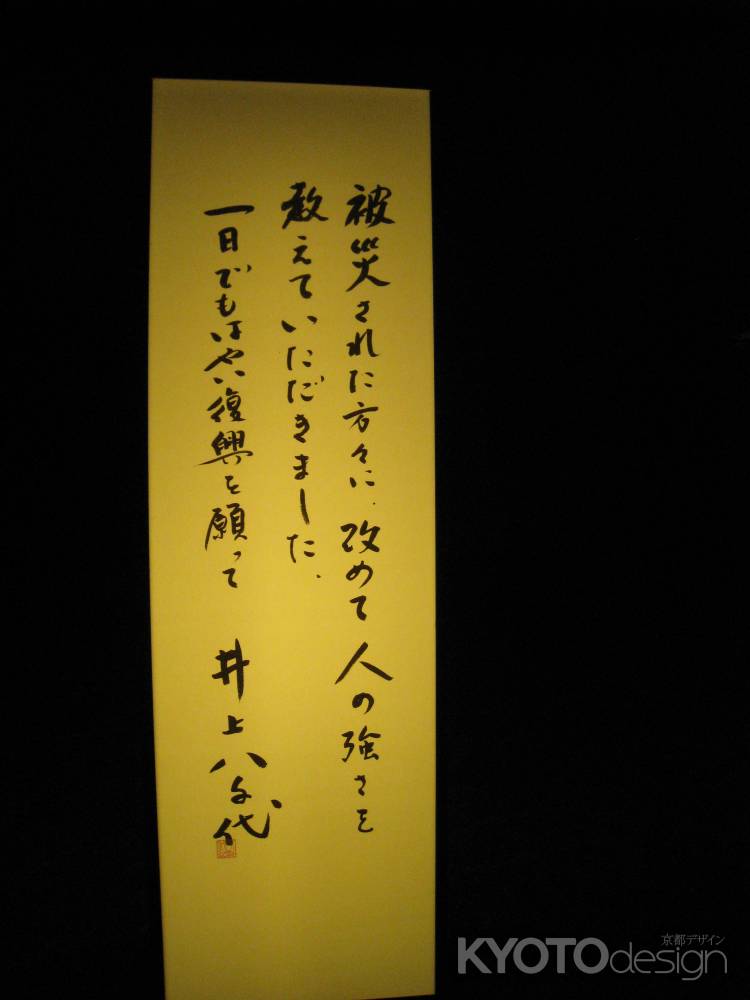 被災された方々に、改めて人の強さを
教えていただきました、
一日でもはやい復興を願って 井上八千代
京都デザイン
KYOTOdesign